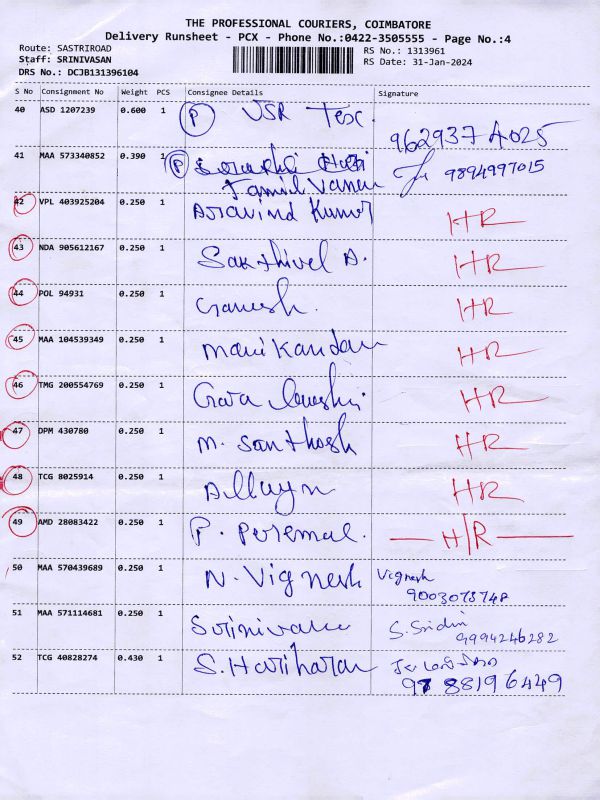 THE PROFESSIONAL COURIERS, COIMBATORE
Delivery Runsheet - PCX - Phone No.:0422-3505555 - Page No.:4
Route: SASTRIROAD
RS No.: 1313961
Staff: SRINIVASAN
RS Date: 31-Jan-2024
DRS No.: DCJB131396104
S No Consignment No Weight PCS Consignee Details Signature
40 ASD 1207239 0.600 1 P VSR Tex. 9629374025
41 MAA 573340852 0.390 1 P 9894997015
Tamil Vanan
42 VPL 403925204 0.250 1 Aravind Kumar HR
43 NDA 905612167 0.250 1 Sakthivel A. HR
44 POL 94931 0.250 1 Ganesh. HR
45 MAA 104539349 0.250 1 Manikandan HR
46 TMG 200554769 0.250 1 HR
47 DPM 430780 0.250 1 M. Santhosh HR
48 TCG 8025914 0.250 1 HR
49 AMD 28083422 0.250 1 P. Perumal. H/R
50 MAA 570439689 0.250 1 N. Vignesh Vignesh
9003073748
51 MAA 571114681 0.250 1 Srinivasan S. Sridhi
9994246282
52 TCG 40828274 0.430 1 S. Hariharan
9788196449